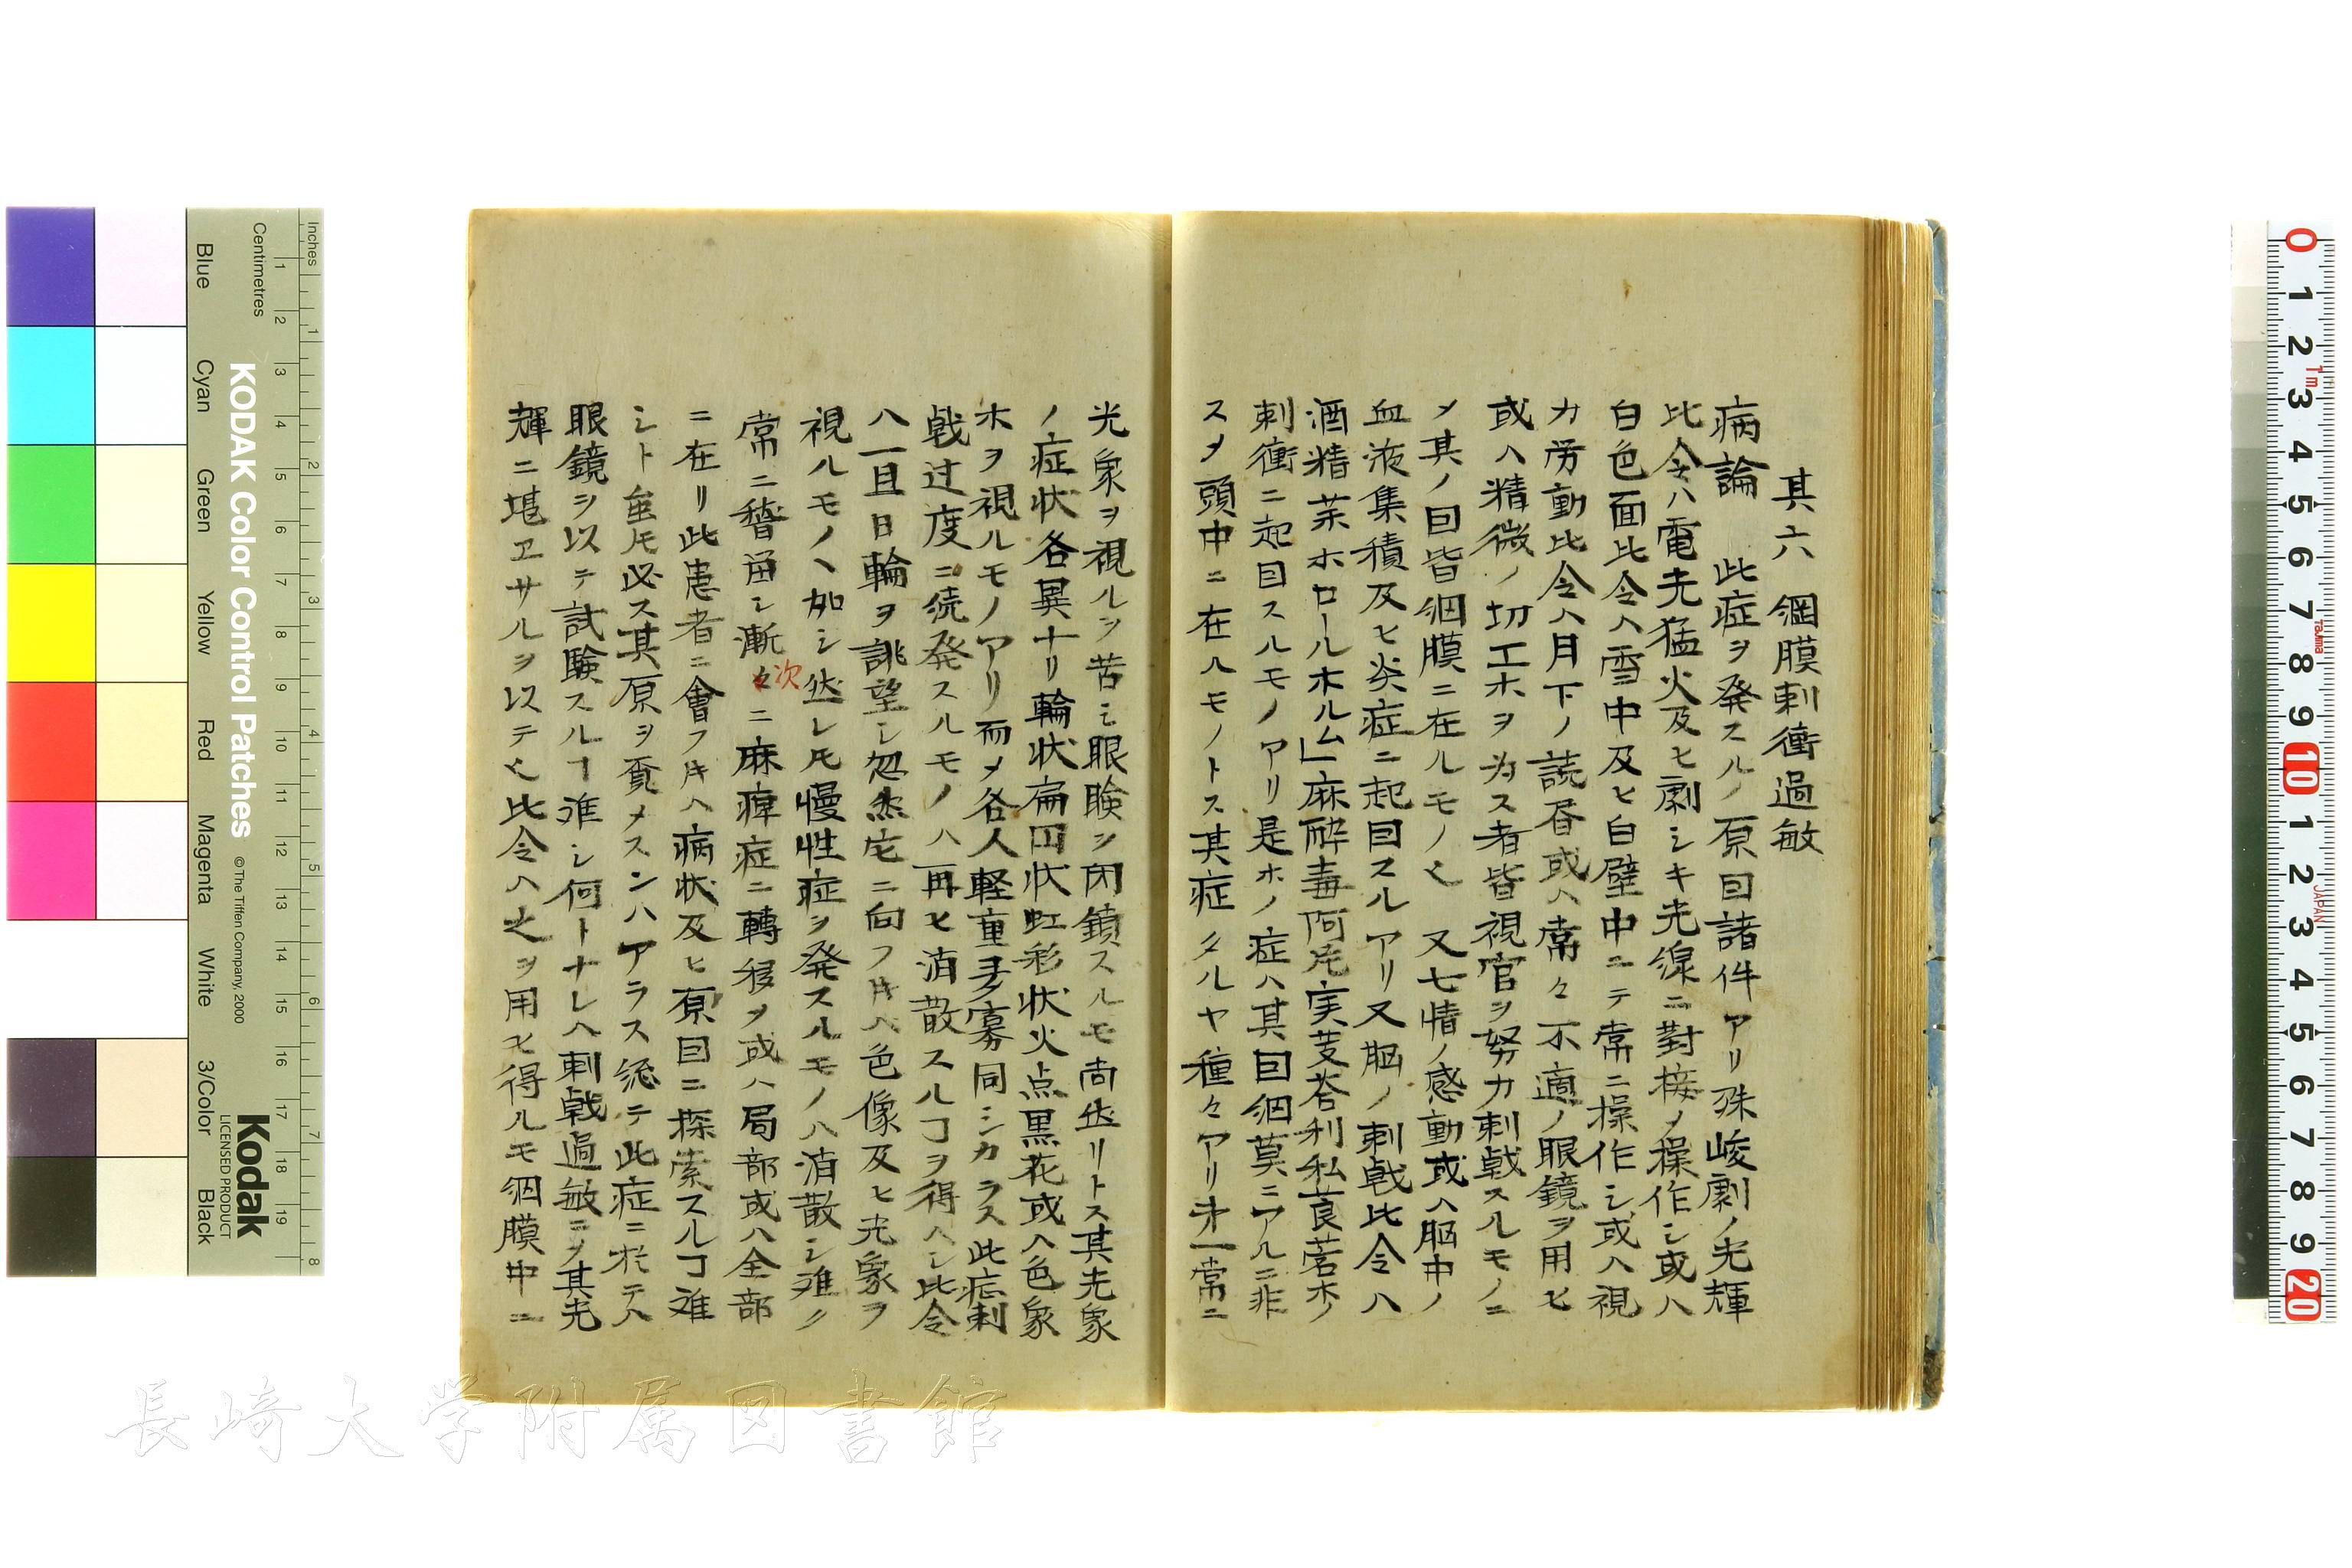 其六 網膜刺衝過敏
病論 此症ヲ発スルノ原因諸件アリ殊峻劇ノ光輝
比令ハ電光猛火及ヒ劇シキ光線ニ對接〆操作シ或ハ
白色面比令ハ雪中及ヒ白壁中ニテ常ニ操作シ或ハ視
力労動比令ハ月下ノ読書或ハ常々不適ノ眼鏡ヲ用ヒ
或ハ精微ノ切工ホヲ為ス者皆視官ヲ努力刺戟スルモノニ
〆其ノ因皆網膜ニ在ルモノ也 又七情ノ感動或ハ脳中ノ
血液集積及ヒ炎症ニ起因スルアリ又脳ノ刺戟比令ハ
酒精茶ホロールホルム」麻酔毒阿片実芰荅利私莨菪ホノ
刺衝ニ起因スルモノアリ是ホノ症ハ其因網莫ニアルニ非
ス〆頭中ニ在ルモノトス其症タルヤ種々アリ才一常ニ
光象ヲ視ルヲ苦シ眼瞼ヲ閉鎖スルモ尚然リトス其光象
ノ症状各異ナリ輪状扁円状虹彩状火点黒花或ハ色象
ホヲ視ルモノアリ而〆各人軽重多寡同シカラス此症刺
戟过度ニ続発スルモノハ再ヒ消散スルヿヲ得ヘシ比令
ハ一旦日輪ヲ誂望シ忽然宅ニ向フ时ハ色像及ヒ光象ヲ
視ルモノヽ如シ然レ𪜈慢性症ヲ発スルモノハ消散シ难ク
常ニ稽畄シ漸々次ニ麻痺症ニ轉移〆或ハ局部或ハ全部
ニ在リ此患者ニ會フ时ハ病状及ヒ原因ニ探索スルヿ难
シト虽𪜈必ス其原ヲ覔メスンハアラス総テ此症ニ於テハ
眼鏡ヲ以テ試験スルヿ难シ何トナレハ刺戟過敏ニ〆其光
輝ニ堪ヱサルヲ以テ也比令ハ之ヲ用ヒ得ルモ網膜中ニ
KODAK Color Control Patches
©The Tiffen Company, 2000
Kodak
LICENSED PRODUCT
Inches
Centimetres
Blue Cyan Green Yellow Red Magenta White 3/Color Black
長崎大学附属図書館